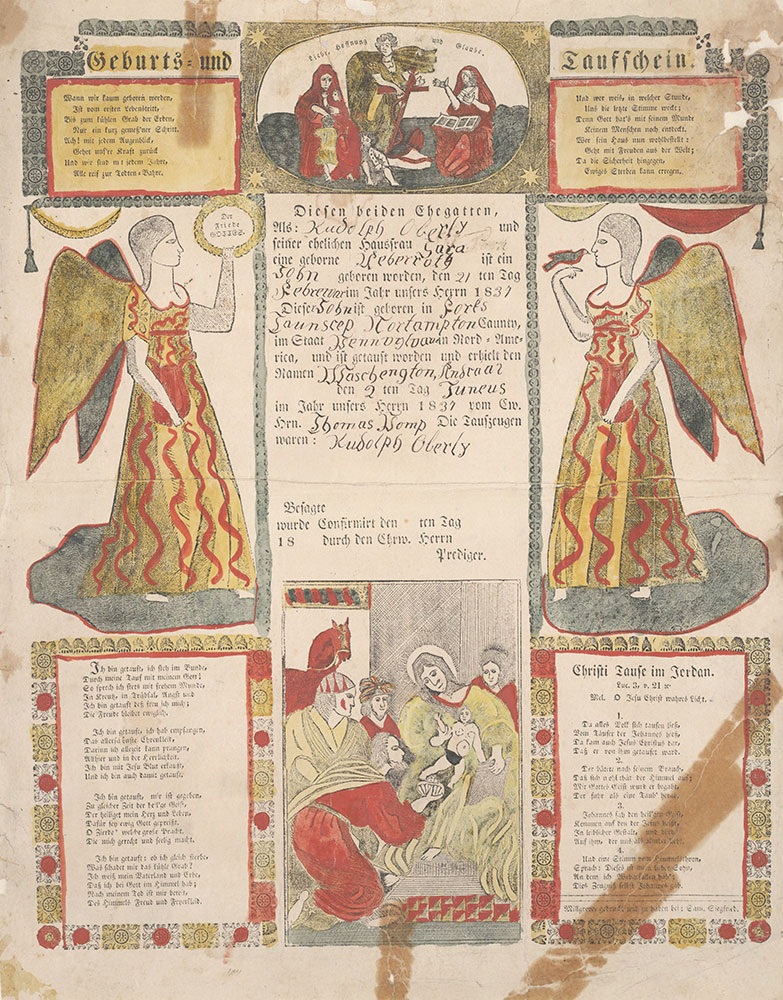 Geburts- und
Liebe, Hoffnung und Glaube.
Taufschein.
Wann wir kaum geboren werden,
Ist vom ersten Lebenstritt,
Bis zum kühlen Grab der Erden,
Nur ein kurz gemeß'ner Schritt.
Ach! mit jedem Augenblick,
Gehet uns're Kraft zurück
Und wir sind mit jedem Jahre,
Alle reif zur Todten-Bahre.
Und wer weis, in welcher Stunde,
Uns die letzte Stimme weckt;
Denn Gott hat's mit seinem Munde
Keinem Menschen noch entdeckt.
Wer sein Haus nun wohlbestellt:
Geht mit Freuden aus der Welt;
Da die Sicherheit hingegen,
Ewiges Sterben kann erregen.
Der
Friede
GOTTES.
Diesen beiden Ehegatten,
Als: Rudolph Oberly und
seiner ehelichen Hausfrau Sara
eine geborne Ueberroth ist ein
Sohn geboren worden, den 21 ten Tag
Febreum im Jahr unsers Herrn 1831
Dieser Sohn ist geboren in Forks
Taunscep Nortampton Caunty,
im Staat Pennsylvan in Nord-Ame-
rica, und ist getauft worden und erhielt den
Namen Waschengton, Andraas
den 2 ten Tag Juneus
im Jahr unsers Herrn 1831 vom Ew.
Hrn. Thomas Pomp Die Taufzeugen
waren: Rudolph Oberly
Besagte
wurde Confirmirt den ten Tag
18 durch den Ehrw. Herrn
Prediger.
Ich bin getauft, ich steh im Bunde,
Durch meine Tauf mit meinem Gott!
So sprach ich stets mit frohem Munde,
In Kreutz, in Trübsal, Angst und
Ich bin getauft deß freu ich mich;
Die Freude bleibet ewiglich.
Ich bin getauft, ich hab empfangen,
Das allerschönste Ehrenkleid,
Darinn ich allezeit kann prangen,
Allhier und in der Herrlichkeit.
Ich bin mit Jesu Blut erkauft,
Und ich bin auch damit getauft.
Ich bin getauft, mir ist gegeben,
Zu gleicher Zeit der heil'ge Geist,
Der heiliget mein Herz und Leben,
Dafür sey ewig Gott gepreißt.
O Zierde! welche große Pracht.
Die mich gerecht und seelig macht.
Ich bin getauft: ob ich gleich sterbe,
Was schadet mir das kühle Grab?
Ich weiß mein Vaterland und Erbe,
Daß ich bei Gott im Himmel hab;
Nach meinem Tod ist mir bereit,
Des Himmels Freud und Feyerkleid.
Christi Taufe im Jordan.
Luc. 3, v. 21 ꝛc
Mel. O Jesu Christ wahres Licht, ..
1.
Da alles Volk sich taufen ließ,
Vom Täufer der Johannes hieß,
Da kam auch Jesus Christus dar,
Daß er von ihm getauft ward.
2.
Der bätete nach seinem Brauch,
Daß sich aufthat der Himmel auf;
Mit Gottes Geist wurd er begabt,
Der fuhr als eine Taub' herab.
3.
Johannes sah den heil'gen Geist,
Kommen auf den der Jesus heißt,
In leiblicher Gestalt, und
Auf ihm, der uns
4.
Und eine Stimm vom Himmelsthron,
Sprach: Dieses ist mein lieber Sohn,
An dem ich Wohlgefallen hab,
Dies Zeugniß selbst Johannes gab.
Millgrove, gedruckt und zu haben bei: Sam. Siegfried.